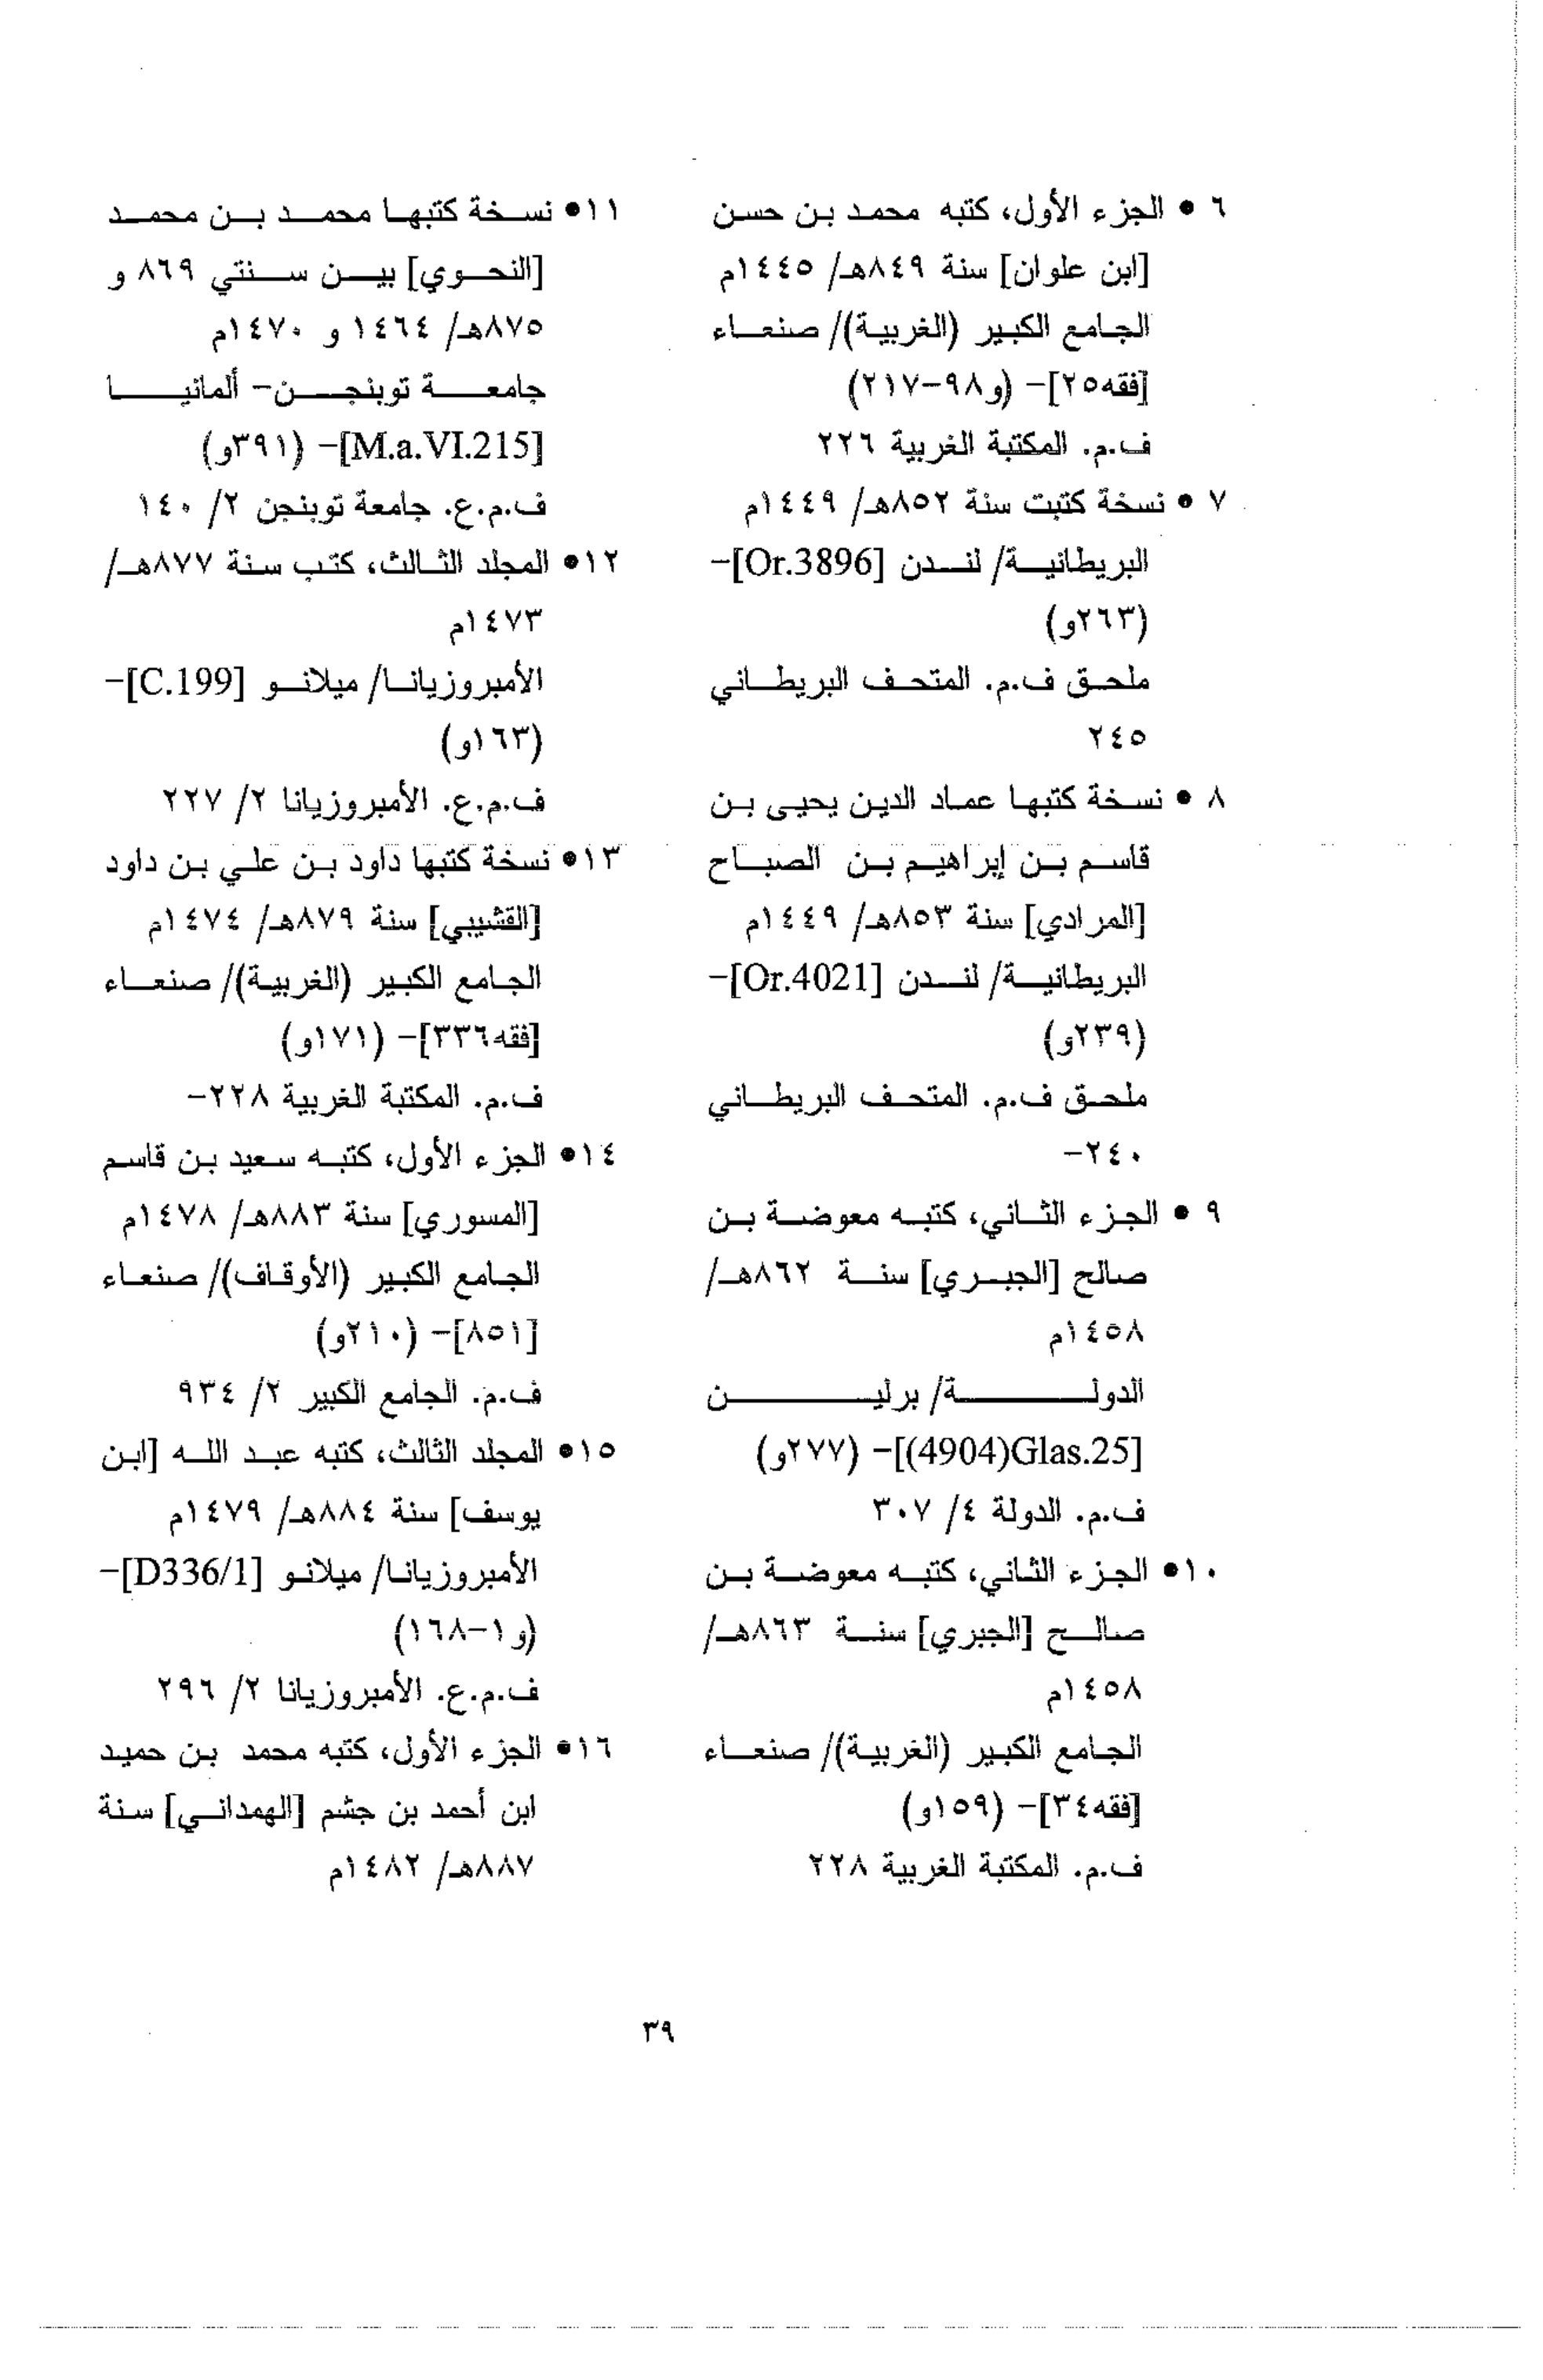 ٦ • الجزء الأول، كتبه محمد بن حسن
[ابن علوان] سنة ٨٤٩هـ/ ١٤٤٥م
الجامع الكبير (الغربية)/ صنعاء
[فقه٢٥]- (و٩٨-٢١٧)
ف.م. المكتبة الغربية ٢٢٦
٧ • نسخة كتبت سنة ٨٥٢هـ/ ١٤٤٩م
البريطانية/ لندن [Or.3896]-
(٢٦٣و)
ملحق ف.م. المتحف البريطاني
٢٤٥
٨ • نسخة كتبها عماد الدين يحيى بن
قاسم بن إبراهيم بن الصباح
[المرادي] سنة ٨٥٣هـ/ ١٤٤٩م
البريطانية/ لندن [Or.4021]-
(٢٣٩و)
ملحق ف.م. المتحف البريطاني
٢٤٠-
٩ • الجزء الثاني، كتبه معوضة بن
صالح [الجبري] سنة ٨٦٢هـ/
١٤٥٨م
الدولة/ برلين
[Glas.25(4904)]- (٢٧٧و)
ف.م. الدولة ٤/ ٣٠٧
١٠• الجزء الثاني، كتبه معوضة بن
صالح [الجبري] سنة ٨٦٣هـ/
١٤٥٨م
الجامع الكبير (الغربية)/ صنعاء
[فقه٣٤]- (١٥٩و)
ف.م. المكتبة الغربية ٢٢٨
١١• نسخة كتبها محمد بن محمد
[النحوي] بين سنتي ٨٦٩ و
٨٧٥هـ/ ١٤٦٤ و ١٤٧٠م
جامعة توبنجن- ألمانيا
[M.a.VI.215]- (٣٩١و)
ف.م.ع. جامعة توبنجن ٢/ ١٤٠
١٢• المجلد الثالث، كتب سنة ٨٧٧هـ/
١٤٧٣م
الأمبروزيانا/ ميلانو [C.199]-
(١٦٣و)
ف.م.ع. الأمبروزيانا ٢/ ٢٢٧
١٣• نسخة كتبها داود بن علي بن داود
[القشيبي] سنة ٨٧٩هـ/ ١٤٧٤م
الجامع الكبير (الغربية)/ صنعاء
[فقه٣٣٦]- (١٧١و)
ف.م. المكتبة الغربية ٢٢٨-
١٤• الجزء الأول، كتبه سعيد بن قاسم
[المسوري] سنة ٨٨٣هـ/ ١٤٧٨م
الجامع الكبير (الأوقاف)/ صنعاء
[٨٥١]- (٢١٠و)
ف.م. الجامع الكبير ٢/ ٩٣٤
١٥• المجلد الثالث، كتبه عبد الله [ابن
يوسف] سنة ٨٨٤هـ/ ١٤٧٩م
الأمبروزيانا/ ميلانو [D336/1]-
(و١-١٦٨)
ف.م.ع. الأمبروزيانا ٢/ ٢٩٦
١٦• الجزء الأول، كتبه محمد بن حميد
ابن أحمد بن جشم [الهمداني] سنة
٨٨٧هـ/ ١٤٨٢م
٣٩